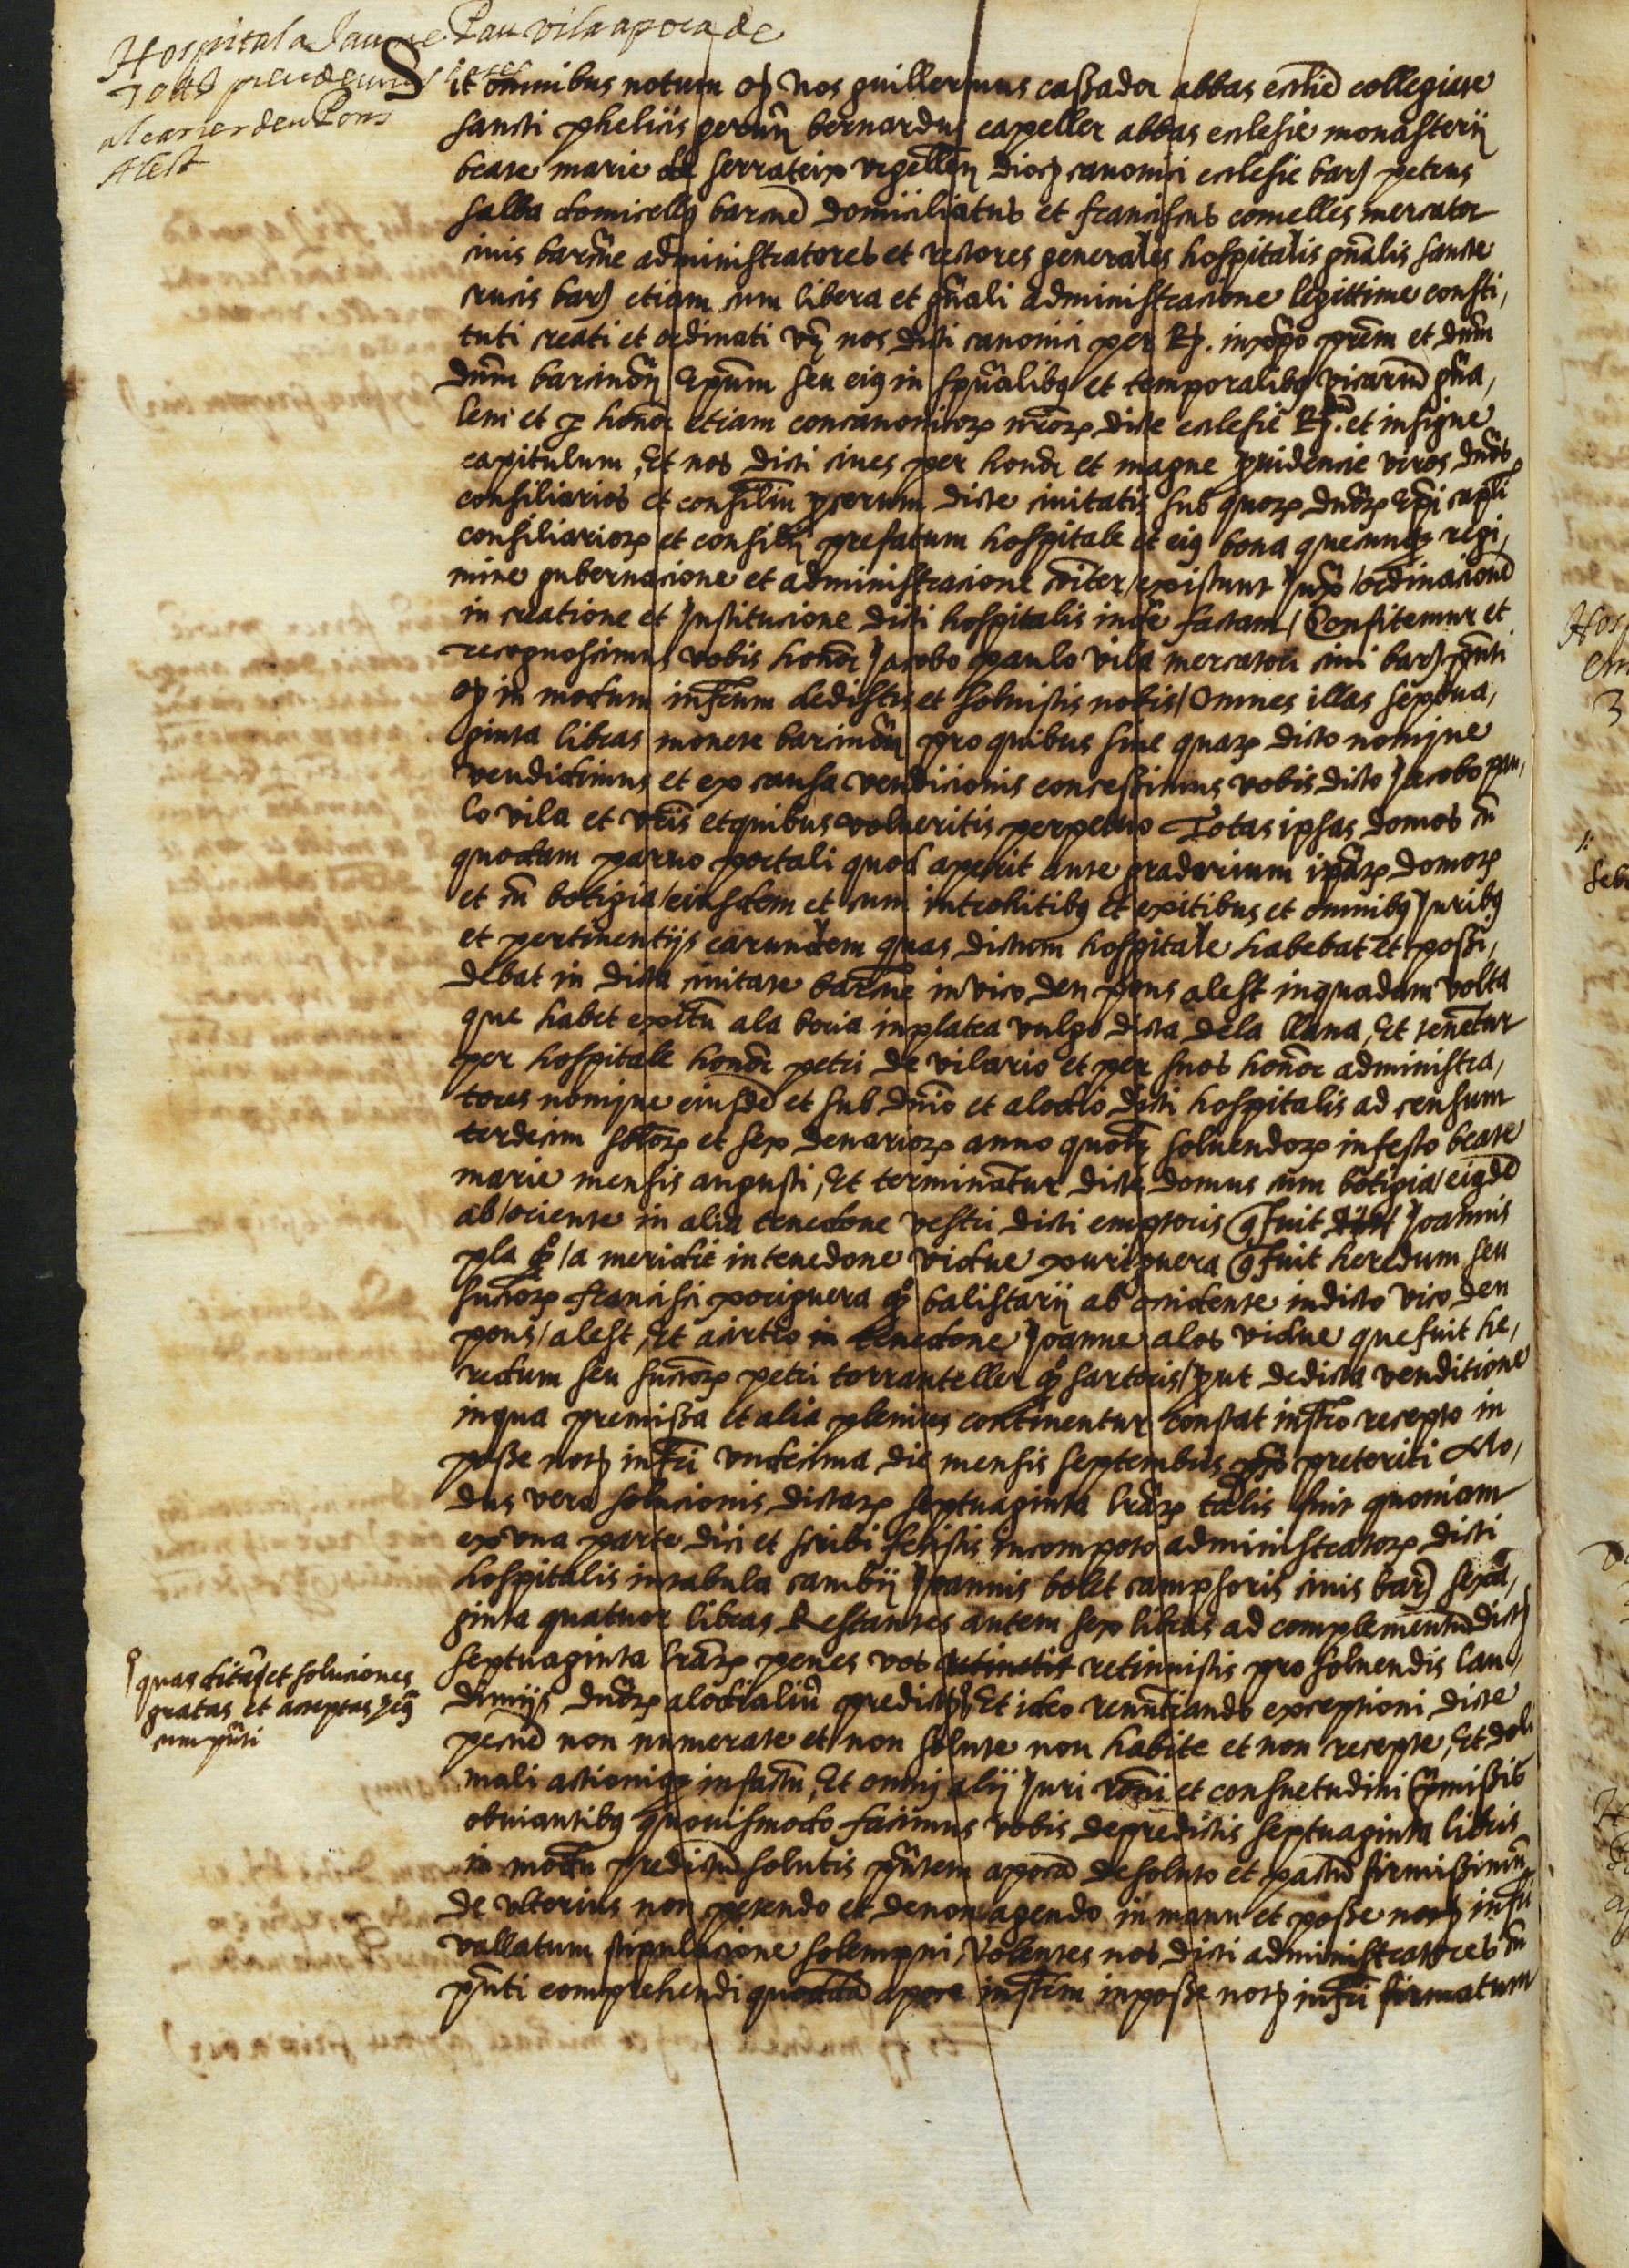 Hospital a Jaume Pau vila apoca de
70 ll. preu de unes cases
al carrer den Pons
Alest
Sit omnibus notum q̄ Nos guillermus cassador abbas ecclie collegiate
sancti phelicis gerunn̄ bernardus capeller abbas eclesie monasterij
beate marie de serrateix vrgellen̄ dioc̄ canonici eclesie barn̄ petrus
salba domicellus barcn̄e domiciliatus et franciscus comelles mercator
ciuis barcn̄e administratores et rectores generales hospitalis gn̄alis sancte
crucis barn̄ etiam cum libera et gn̄ali administracione legittime consti,
tuti creati et ordinati vz̄ nos dicti canonici per R. in xp̄o prēm et dn̄m
dn̄m barcinon̄ Ep̄um seu eius in spūalibus et temporalibus vicariū gn̄a,
lem et per honor̄ etiam concanonicorum nr̄orum dicte eclesie R. et insigne
capitulum, Et nos dicti ciues per honor̄ et magne prudencie viros dn̄os
consiliarios et consiliū procerum dicte ciuitatis sub quorum dn̄orum Ep̄i capl̄i
consiliariorum et consilij prefatum hospitale et eius bona quecunque regi,
mine gubernacione et administracione cōiter existunt Juxᵃ ordinacionē
in creatione et Jnstitucione dicti hospitalis inde factam / Confitemur et
recognoscimus vobis honor̄ Jacobo paulo vila mercatori ciui barn̄ pn̄ti
q̄ in modum infr̄um dedistis et soluistis nobis / Omnes illas septua,
ginta libras monete barcinon̄ pro quibus siue quarum dicto nomine
vendidimus et ex causa vendicionis concessimus vobis dicto Jacobo pau,
lo vila et vr̄is et quibus volueritis perpetuo Totas ipsas domos cū
quodam paruo portali quod aperit ante graderium ipsarum domorum
et cū botigia eiusdem et cum introhitibus et exitibus et omnibus Juribus
et pertinentijs earundem quas dictum hospitale habebat et possi,
debat in dicta ciuitate barcn̄e in vico den pons alest in quadam volta
que habet exitū ala boria in platea vulgo dicta dela llana, Et tenētur
per hospitale honor̄ petri de vilario et per suos honor̄ administra,
tores nomine eiusdē et sub dn̄io et alodio dicti hospitalis ad censum
terdecim solidorum et sex denariorum anno quolz̄ soluendorum in festo beate
marie mensis augusti, Et terminātur dicte domus cum botigia eiusdē
ab oriente in alia tenedone vestri dicti emptoris q̄ fuit Joannis
pla q̄o / a meridie in tenedone vidue puriguera q̄ fuit heredum seu
successorum francisci poriguera q̄o balistarij ab occidente in dicto vico den
pons alest, Et a circio in tenedone Joanne alos vidue que fuit he,
redum seu successorum petri torranteller q̄o sartoris / prout de dicta venditione
in qua premissa et alia plenius continentur constat instro recepto in
posse notj infri vndecima die mensis septembris pxo preteriti Mo,
dus vero solucionis dictarum septuaginta librarum talis fuit quoniam
ex vna parte dici et scribi fecistis in compoto administratorum dicti
hospitalis in tabula cambij Joannis bolet campsoris ciuis barn̄ sexa,
ginta quatuor libras Restantes autem sex libras ad complementū dictarum
septuaginta librarum penes vos retinuistis pro soluendis lau,
dimijs dn̄orum alodialiū predictorum, Et ideo renuntiando exceptioni dicte
pecūe non numerate et non solute non habite et non recepte, Et doli
mali actionique in factū, Et omni alij Juri rōni et consuetudini premissis
obuiantibus quouismodo facimus vobis de predictis septuaginta libris
in modū predictū solutis pn̄tem apocā de soluto et pactū firmissimū
de vlterius non petendo et de non agendo in manu et posse notj infri
vallatum stipulacione solempni, Volentes nos dicti administratores cū
pn̄ti comprehendi quoddā apoce instrm̄ in posse notj infri firmatum
quas dita et soluciones
gratas et acceptas
cum pn̄ti